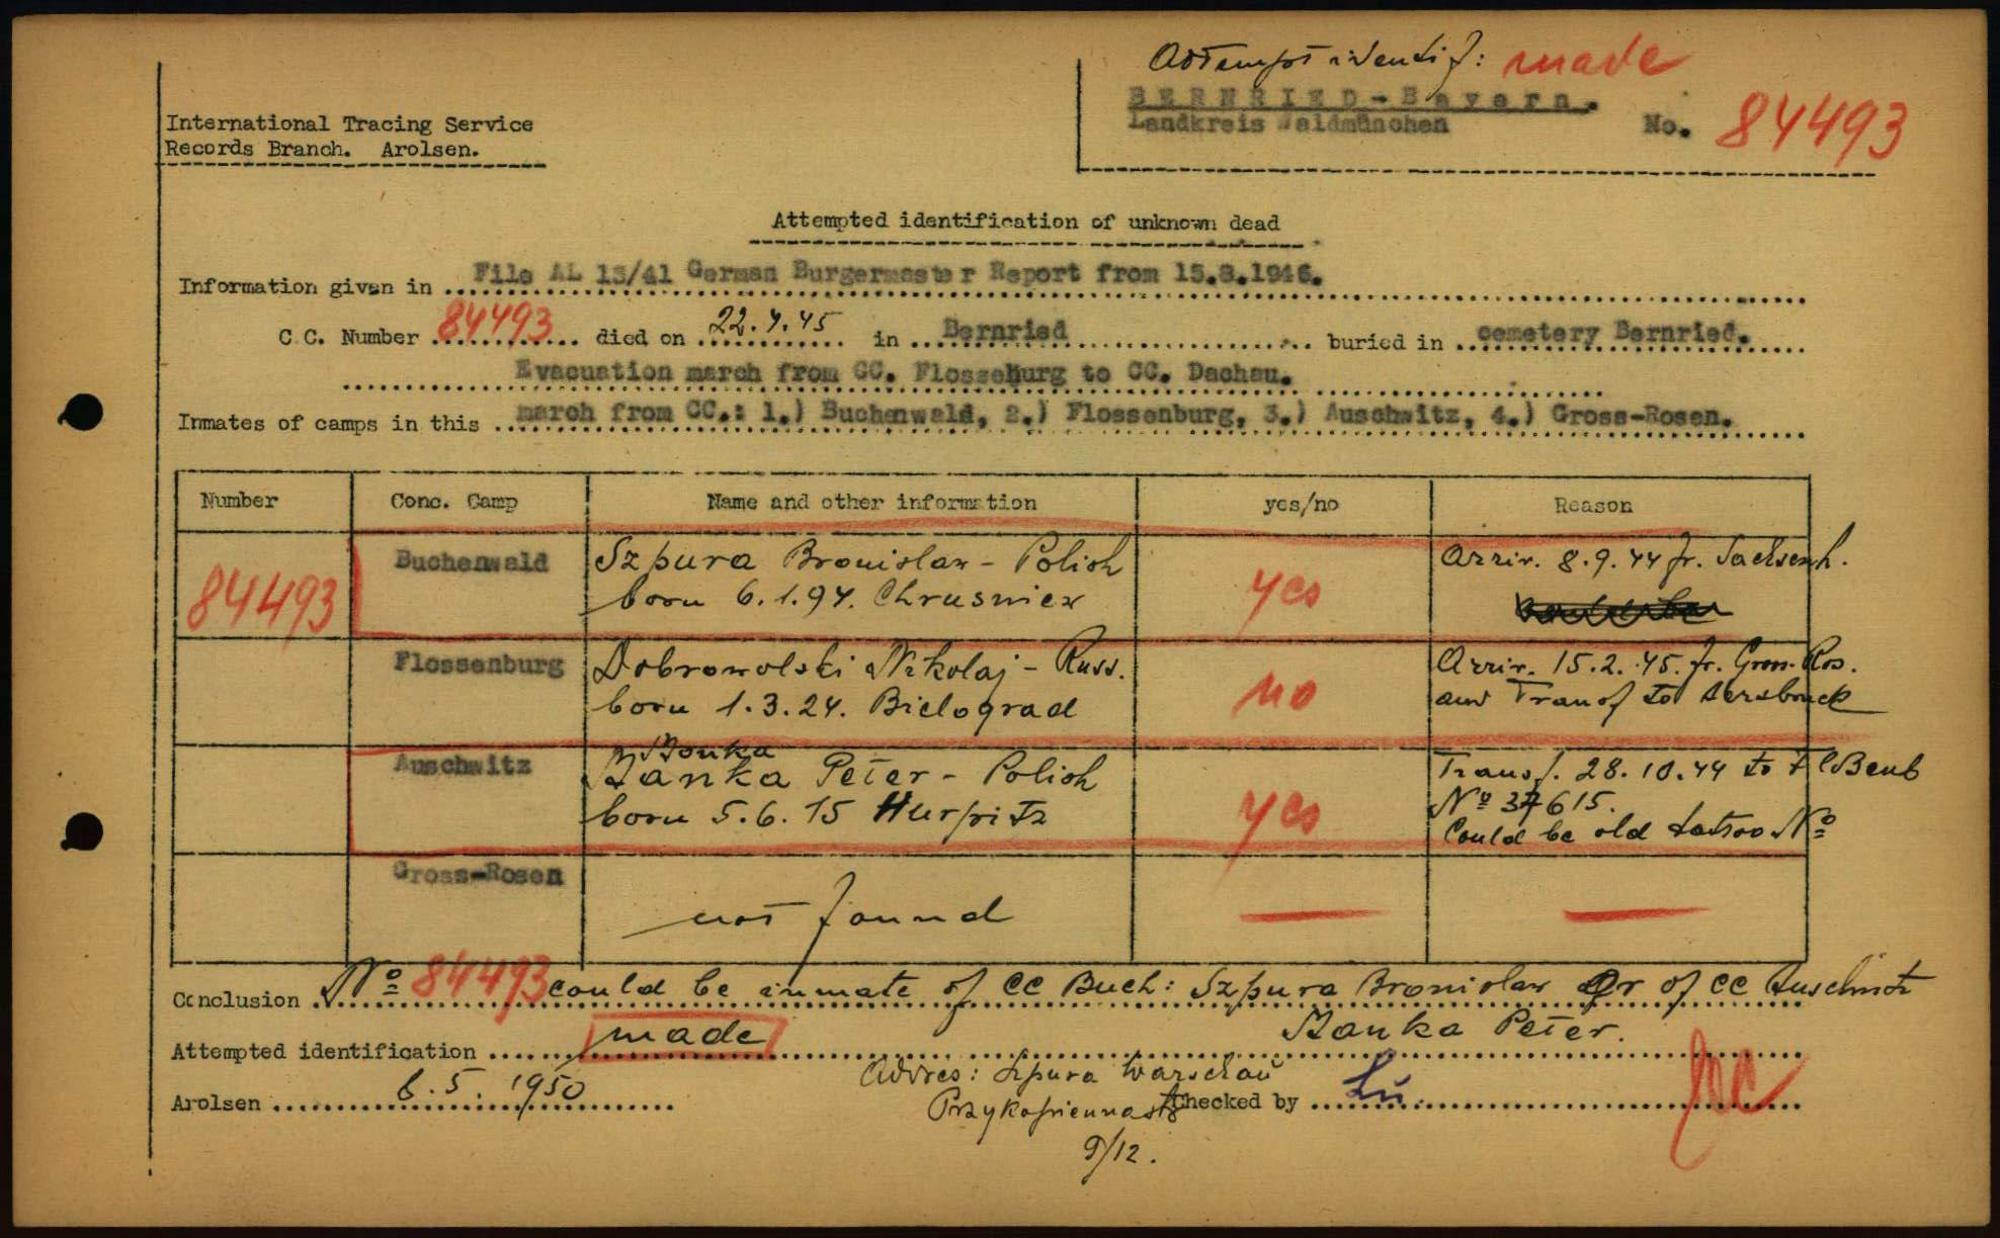 Attempt identif: made
BERNRIED-Bayern.
Landkreis Waldmünchen No. 84493
International Tracing Service
Records Branch. Arolsen.
Attempted identification of unknown dead
Information given in File AL 13/41 German Burgermaster Report from 15.8.1946.
C.C. Number 84493 died on 22.4.45 in Bernried buried in cemetery Bernried.
Evacuation march from CC. Flossenburg to CC. Dachau.
Inmates of camps in this march from CC.: 1.) Buchenwald, 2.) Flossenburg, 3.) Auschwitz, 4.) Gross-Rosen.
Number Conc. Camp Name and other information yes/no Reason
84493 Buchenwald Szpura Bronislaw - Polish yes Arriv. 8.9.44 fr. Sachsenh.
born 6.1.94. Chrusniew
Flossenburg Dobrowolski Nikolaj - Russ. no Arriv. 15.2.45. fr. Gross-Ros.
born 1.3.24. Bielograd and Transf to Hersbruck
Auschwitz Stanka Peter - Polish yes Transf. 28.10.44 to FloBenb
born 5.6.15 Hurpitz Nº 37615.
Could be old tattoo Nº
Gross-Rosen not found
Conclusion Nº 84493 could be inmate of CC Buch: Szpura Bronislaw Or of CC Auschwitz
Stanka Peter.
Attempted identification made
Arolsen 6.5.1950
Addres: Szpura Warschau
Przykopienna
9/12.
Checked by Lü.